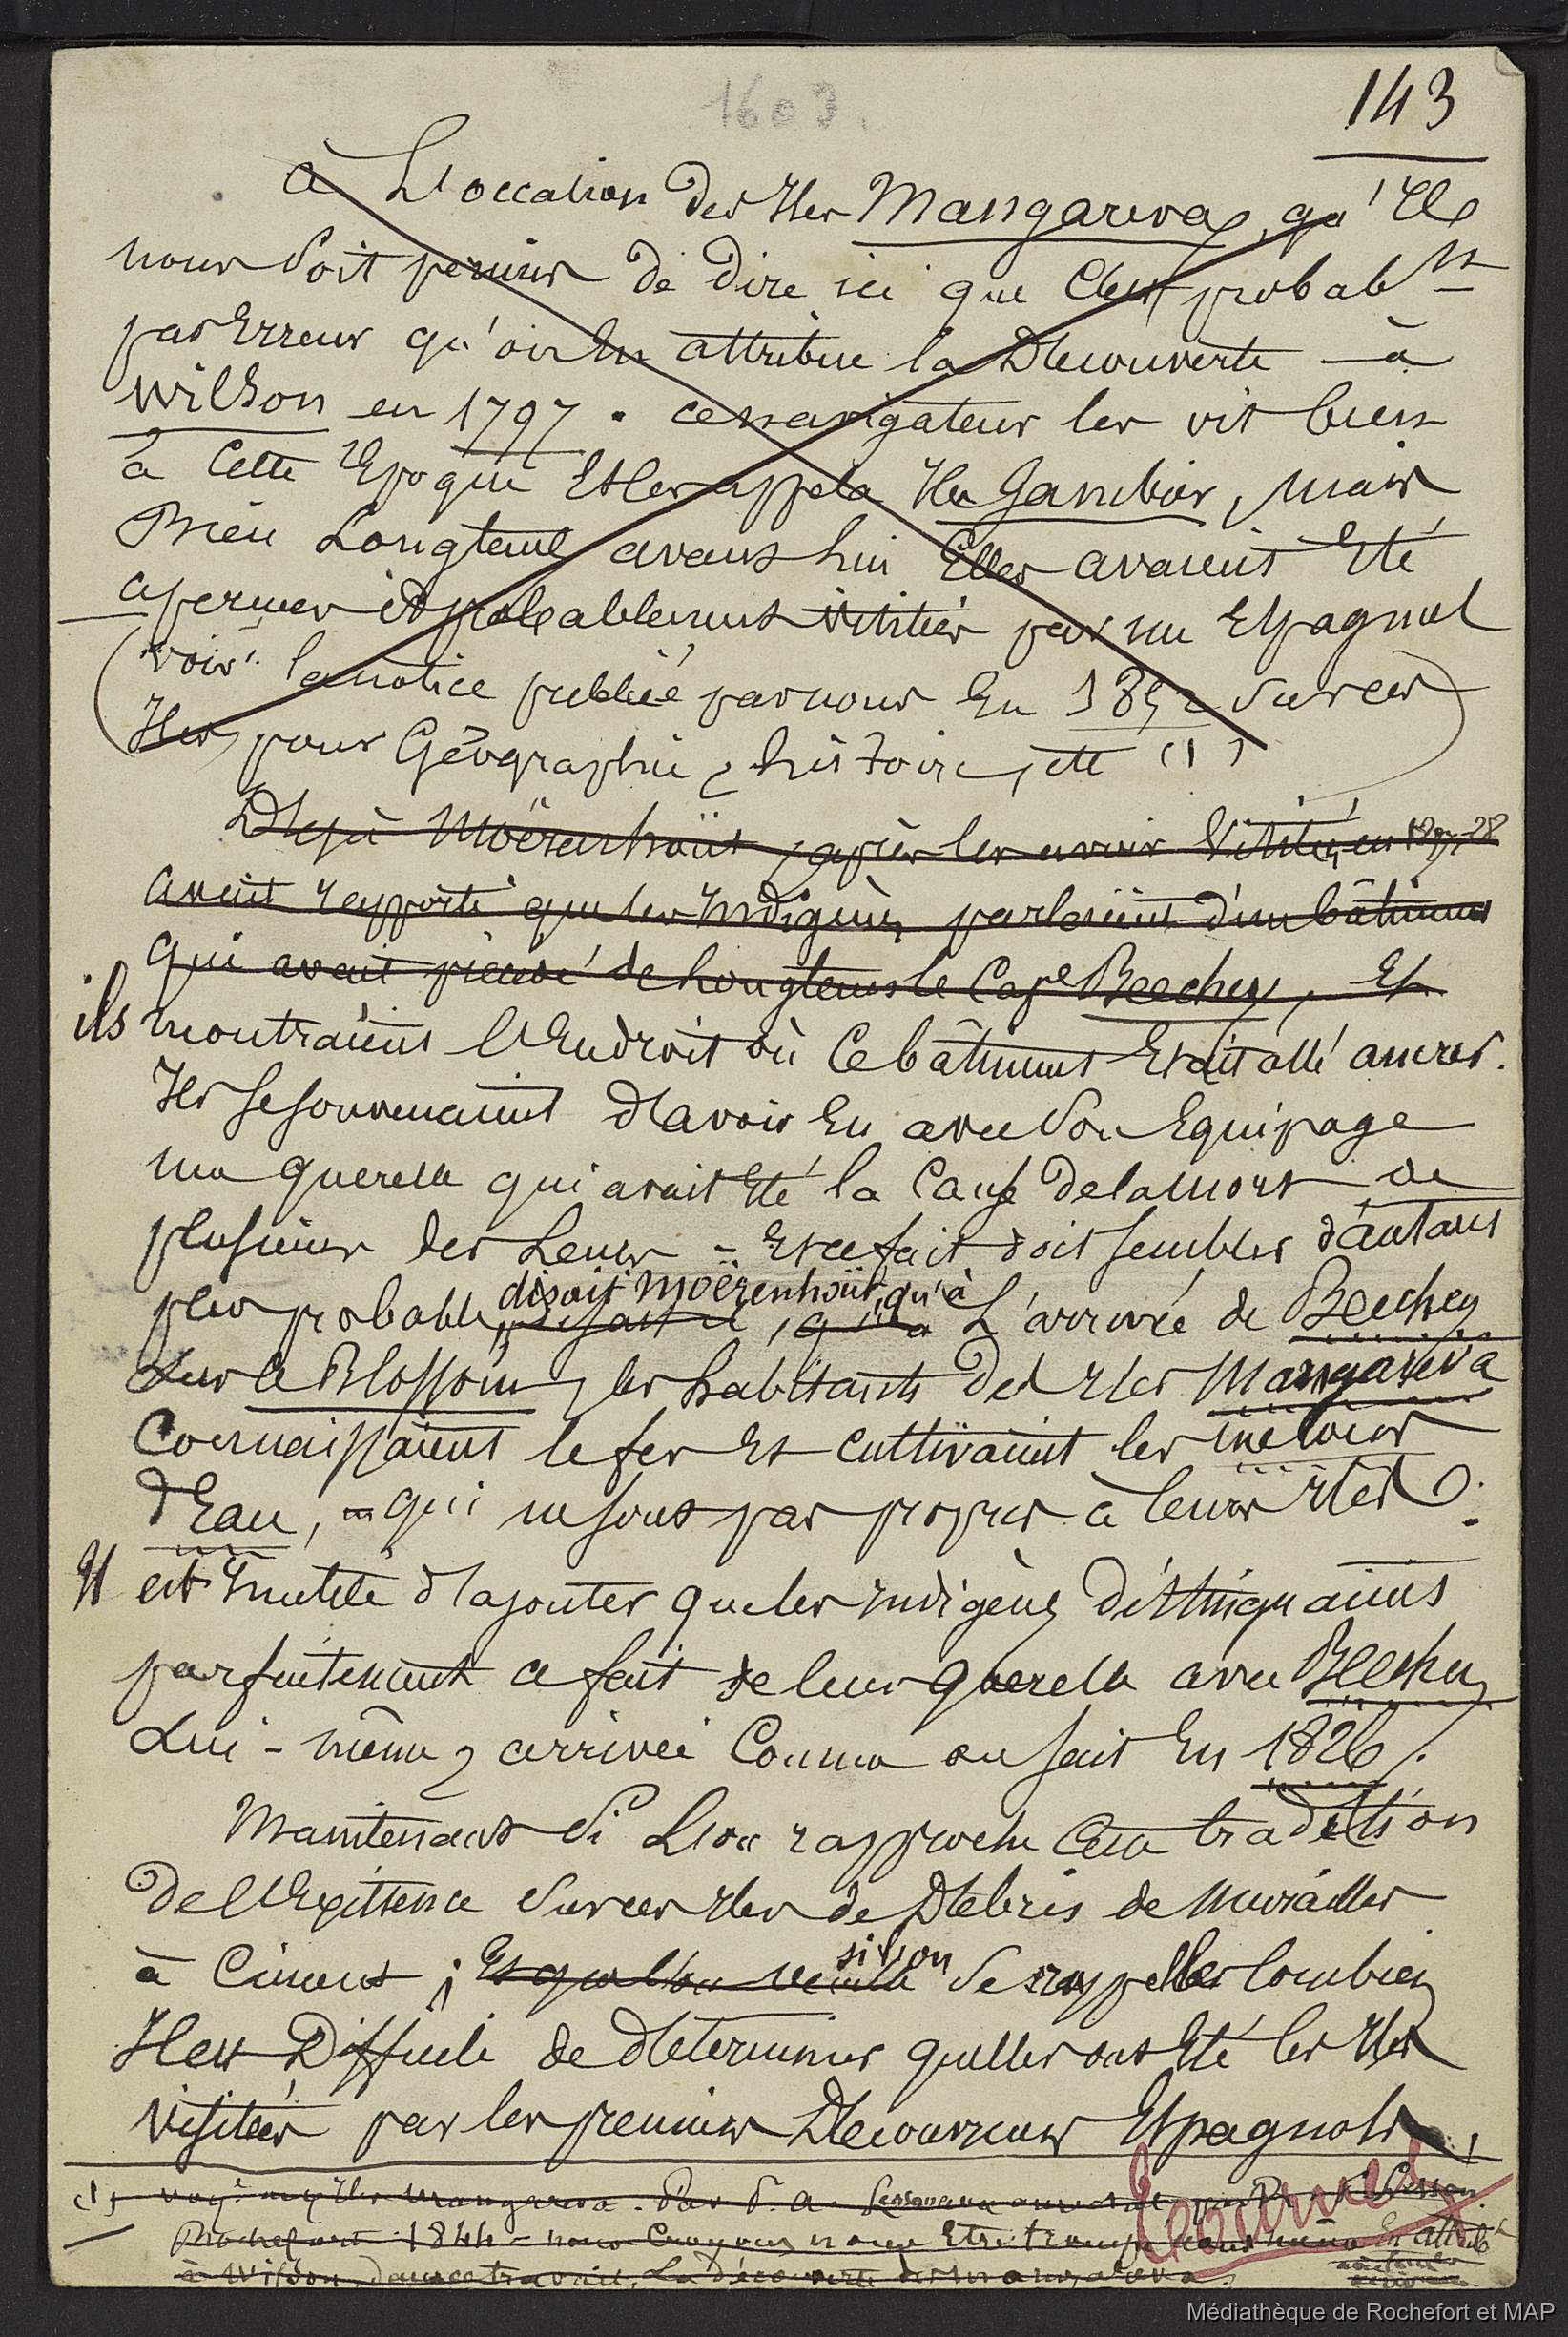 1603.
143
à L'occasion des Iles Mangareva, qu'Il
nous Soit permis de dire ici que C'est probabt
par Erreur qu'on En attribue la Découverte à
Wilson en 1797. ce navigateur les vit bien
à Cette Epoque Et les appela Iles Gambier, mais
Bien Longtems avant lui Elles avaient Eté
aperçues et probablement visitées par un Espagnol
(voir: la notice publiée par nous En 1852 Sur ces
Iles, pour Géographie, histoire, ett (1)
Déjà Moërenhoüt, après les avoir Visitées en 1827-28
avait rapporté que les Indigènes parlaient d'un bâtiment
qui avait précédé de Longtems le Cape Beechey, Et
ils montraient l'Endroit où Ce bâtiment Etait allé ancrer.
Ils se souvenaient d'avoir Eu avec Son Equipage
une querelle qui avait Eté la Cause de la mort de
plusieurs des Leurs - Et ce fait doit sembler d'autant
disait Moërenhoüt, qu'à
plus probable, disait-il, qu'à L'arrivée de Beechey
Sur le Blossom, les habitants des Iles Mangareva
Connaissaient le fer Et cultivaient les melons
d'Eau, - qui ne sont pas propres à leurs Iles.
Il est Inutile d'ajouter que les indigènes distinguaient
parfaitement ce fait de leur querelle avec Beechey
Lui-même, arrivée Comme on sait En 1826.
Maintenant Si L'on rapproche Cette tradition
De l'Existence Sur ces Iles de Débris de Murailles
si l'on
à Ciment ; Et que l'on veuille Se rappeller Combien
Il est Difficile de déterminer quelles ont Eté les Iles
visitées par les premiers Découvreurs Espagnols,
(1) voy: Iles Mangareva. Par P. A. Lesson
Rochefort 1844 - nous Croyons nous Etre trompé nous même En attribt
à Wilson, dans ce travail, La découverte des Mangareva.